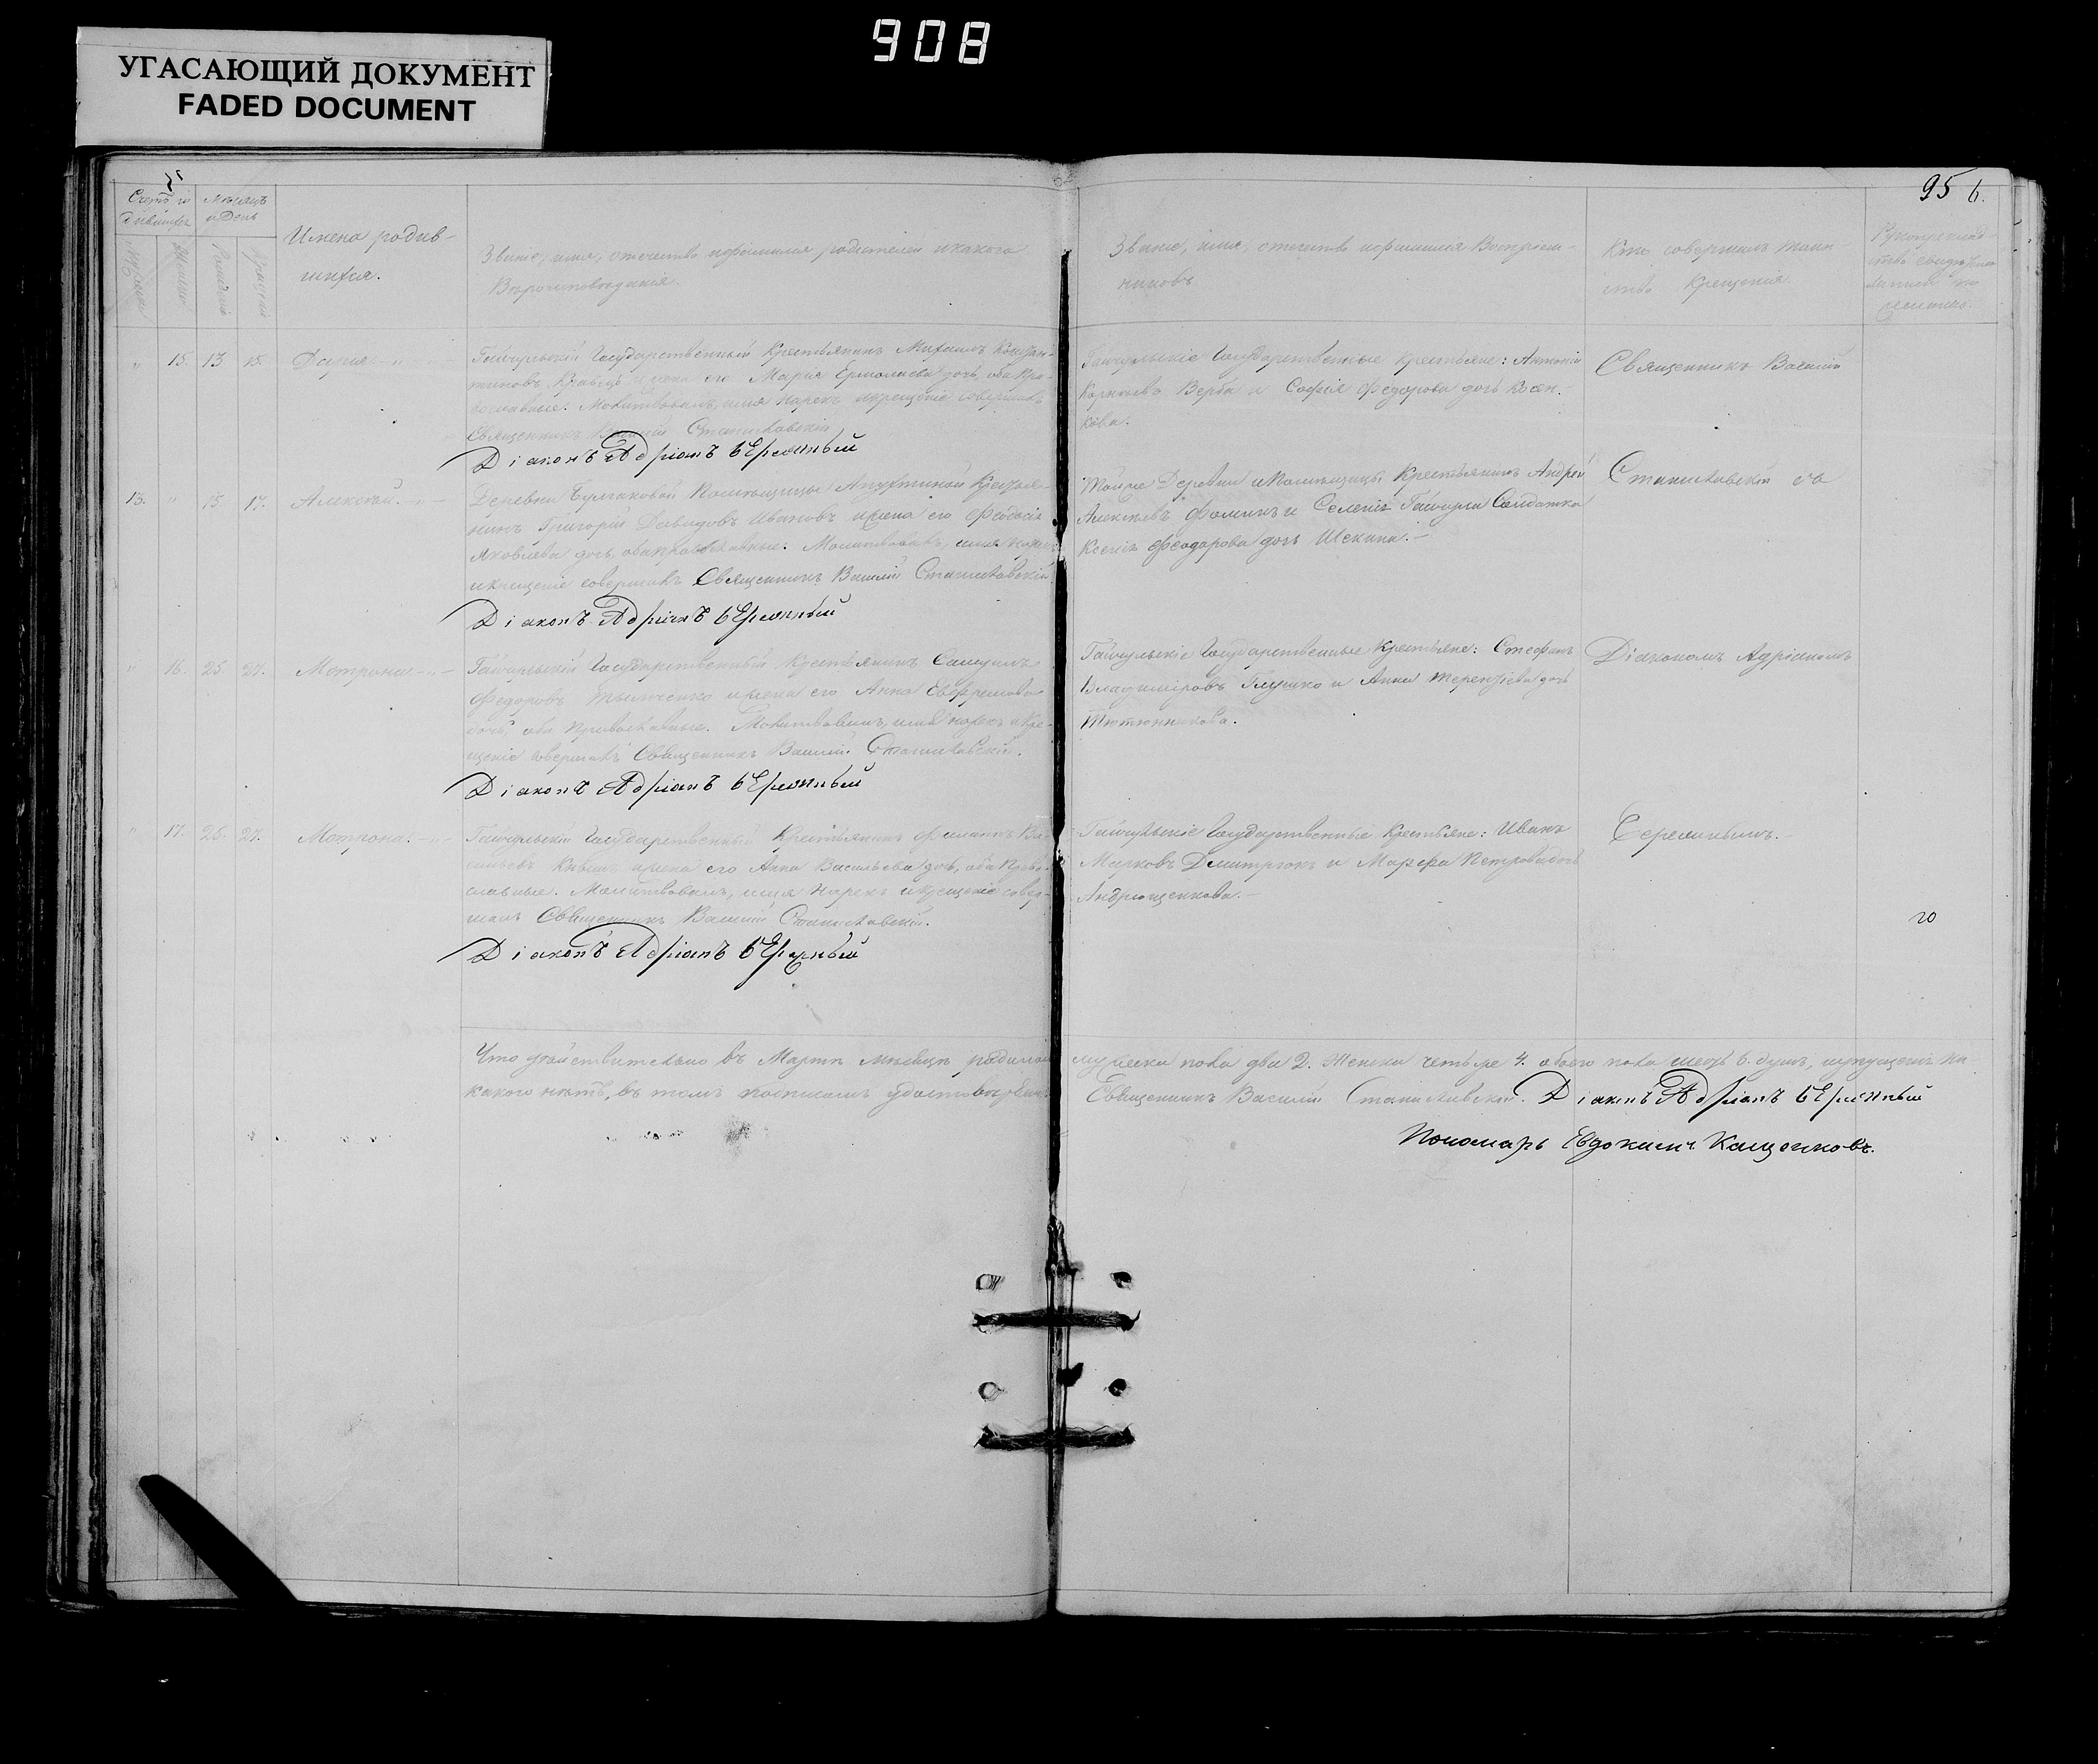 908
УГАСАЮЩИЙ ДОКУМЕНТ
FADED DOCUMENT
95 6.
Счетъ
Мѣсяцъ
и День
Имена родив-
шихся.
Званіе, имя, отчество и фамилія родителей и какого
Вѣроисповѣданія.
Званіе, имя, отчество и фамилія Воспріем-
никовъ
Кто совершалъ таин-
ство Крещенія.
" 15. 13 15. Дарія
Гайчульскій Государственный Крестьянинъ Михаилъ Констан-
тиновъ Кравецъ и жена его Марія Ермолаева дочь, оба Пра-
вославные. Молитвовалъ, имя нарекъ и крещеніе совершалъ
Священникъ Василій Станиславскій
Діаконъ Адріанъ
Гайчульскіе Государственные крестьяне: Антоній
Корнѣевъ Верба и Софія Федорова дочь
кова.
Священникъ Василій
13. " 15 17. Алексѣй.
Деревни Булгаковой Помѣщицы Апухтиной Крестья-
нинъ Григорій Давидовъ Ивановъ и жена его Феодосія
Яковлева дочь, оба православные. Молитвовалъ, имя нарекъ
и крещеніе совершалъ Священникъ Василій Станиславскій
Діаконъ Адріанъ
Тойже Деревни и Помѣщицы Крестьянинъ Андрей
Алексѣевъ Фоминъ и Селенія Гайчула Солдатка
Ксенія Феодорова дочь Шекина.
Станиславскій со
" 16. 25 27. Мотрона
Гайчульскій Государственный Крестьянинъ Самуилъ
Федоровъ и жена его Анна Евфремова
дочь, оба Православные. Молитвовалъ, имя нарекъ и Кре-
щеніе совершалъ Священникъ Василій Станиславскій.
Діаконъ Адріанъ
Гайчульскіе Государственные Крестьяне: Стефанъ
Владиміровъ Глушко и Анна Терентіева дочь
Тютюнникова.
Діакономъ Адріаномъ
" 17. 25. 27. Мотрона.
Гайчульскій Государственный Крестьянинъ Филиппъ Ва-
сильевъ и жена его Анна Васильева дочь, оба Право-
славные. Молитвовалъ, имя нарекъ и крещеніе совер-
шалъ Священникъ Василій Станиславскій.
Діаконъ Адріанъ
Гайчульскіе Государственные Крестьяне: Иванъ
Марковъ Дмитрюкъ и Марфа Петрова дочь
Андрющенкова.
20
Что дѣйствительно въ Мартѣ мѣсяцѣ родилось мужеска пола два 2. Женска четыре 4. обоего пола шесть 6. душъ, и пропуску ни-
какого нѣтъ, въ томъ подписомъ удостовѣряемъ Священникъ Василій Станиславскій. Діаконъ Адріанъ
Пономарь Евдокимъ Кащенковъ.